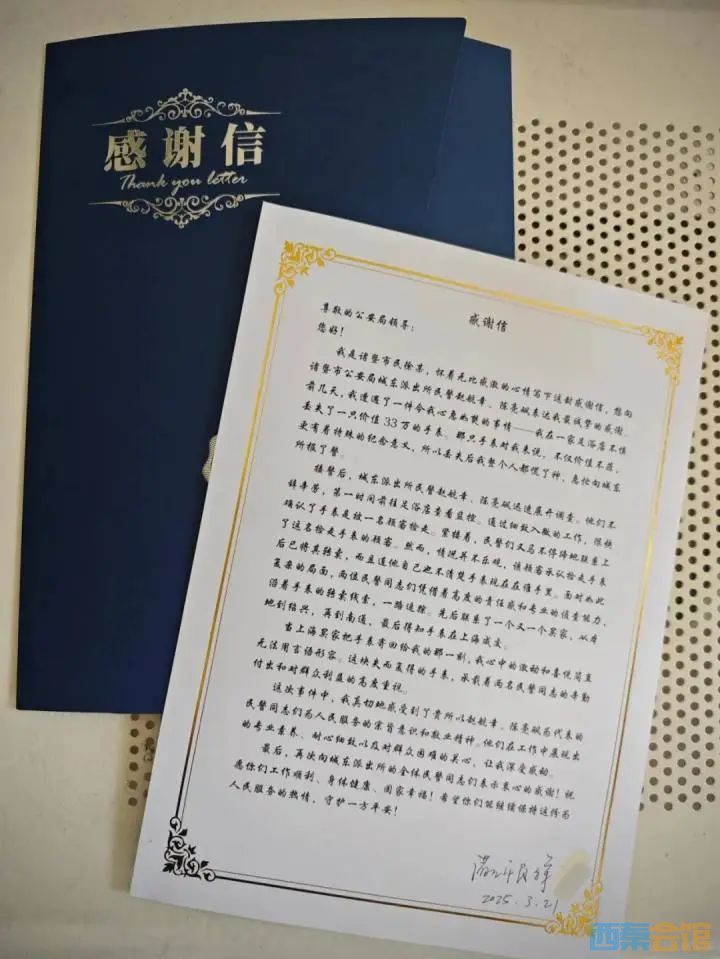 感谢信
Thank you letter
感谢信
尊敬的公安局领导：
您好！
我是诸暨市民徐某，怀着无比感激的心情写下这封感谢信，您向
诸暨市公安局城东派出所民警赵航幸、陈亮斌表达我最诚挚的感谢。
前几天，我遭遇了一件令我心急如焚的事情——我在一家足浴店不慎
丢失了一只价值33万的手表。那只手表对我来说，不仅价值不菲，
更有着特殊的纪念意义，所以丢失后我整个人都慌了神，急忙向城东
所报了警。
接警后，城东派出所民警赵航幸、陈亮斌迅速展开调查。他们不
辞辛劳，第一时间前往足浴店查看监控。通过细致入微的工作，很快
确认了手表是被一名顾客捡走。紧接着，民警们又马不停蹄地联系上
了这名捡走手表的顾客。然而，情况并不乐观，该顾客承认捡走手表
后已将其转卖，而且连他自己也不清楚手表现在在谁手里。面对如此
复杂的局面，两位民警同志们凭借着高度的责任感和专业的侦查能力，
沿着手表的转卖线索，一路追踪。先后联系了一个又一个买家，从本
地到绍兴，再到南通，最后得知手表在上海成交。
当上海买家把手表寄回给我的那一刻，我心中的激动和喜悦简直
无法用言语形容。这块失而复得的手表，承载着两名民警同志的辛勤
付出和对群众利益的高度重视。
这次事件中，我真切地感受到了贵所以赵航幸、陈亮斌为代表的
民警同志们为人民服务的宗旨意识和敬业精神。他们在工作中展现出
的专业素养、耐心细致以及对群众困难的关心，让我深受感动。
最后，再次向城东派出所的全体民警同志们表示衷心的感谢！祝
愿你们工作顺利、身体健康、阖家幸福！希望你们能继续保持这份为
人民服务的热情，守护一方平安！
2025.3.21
西秦会馆